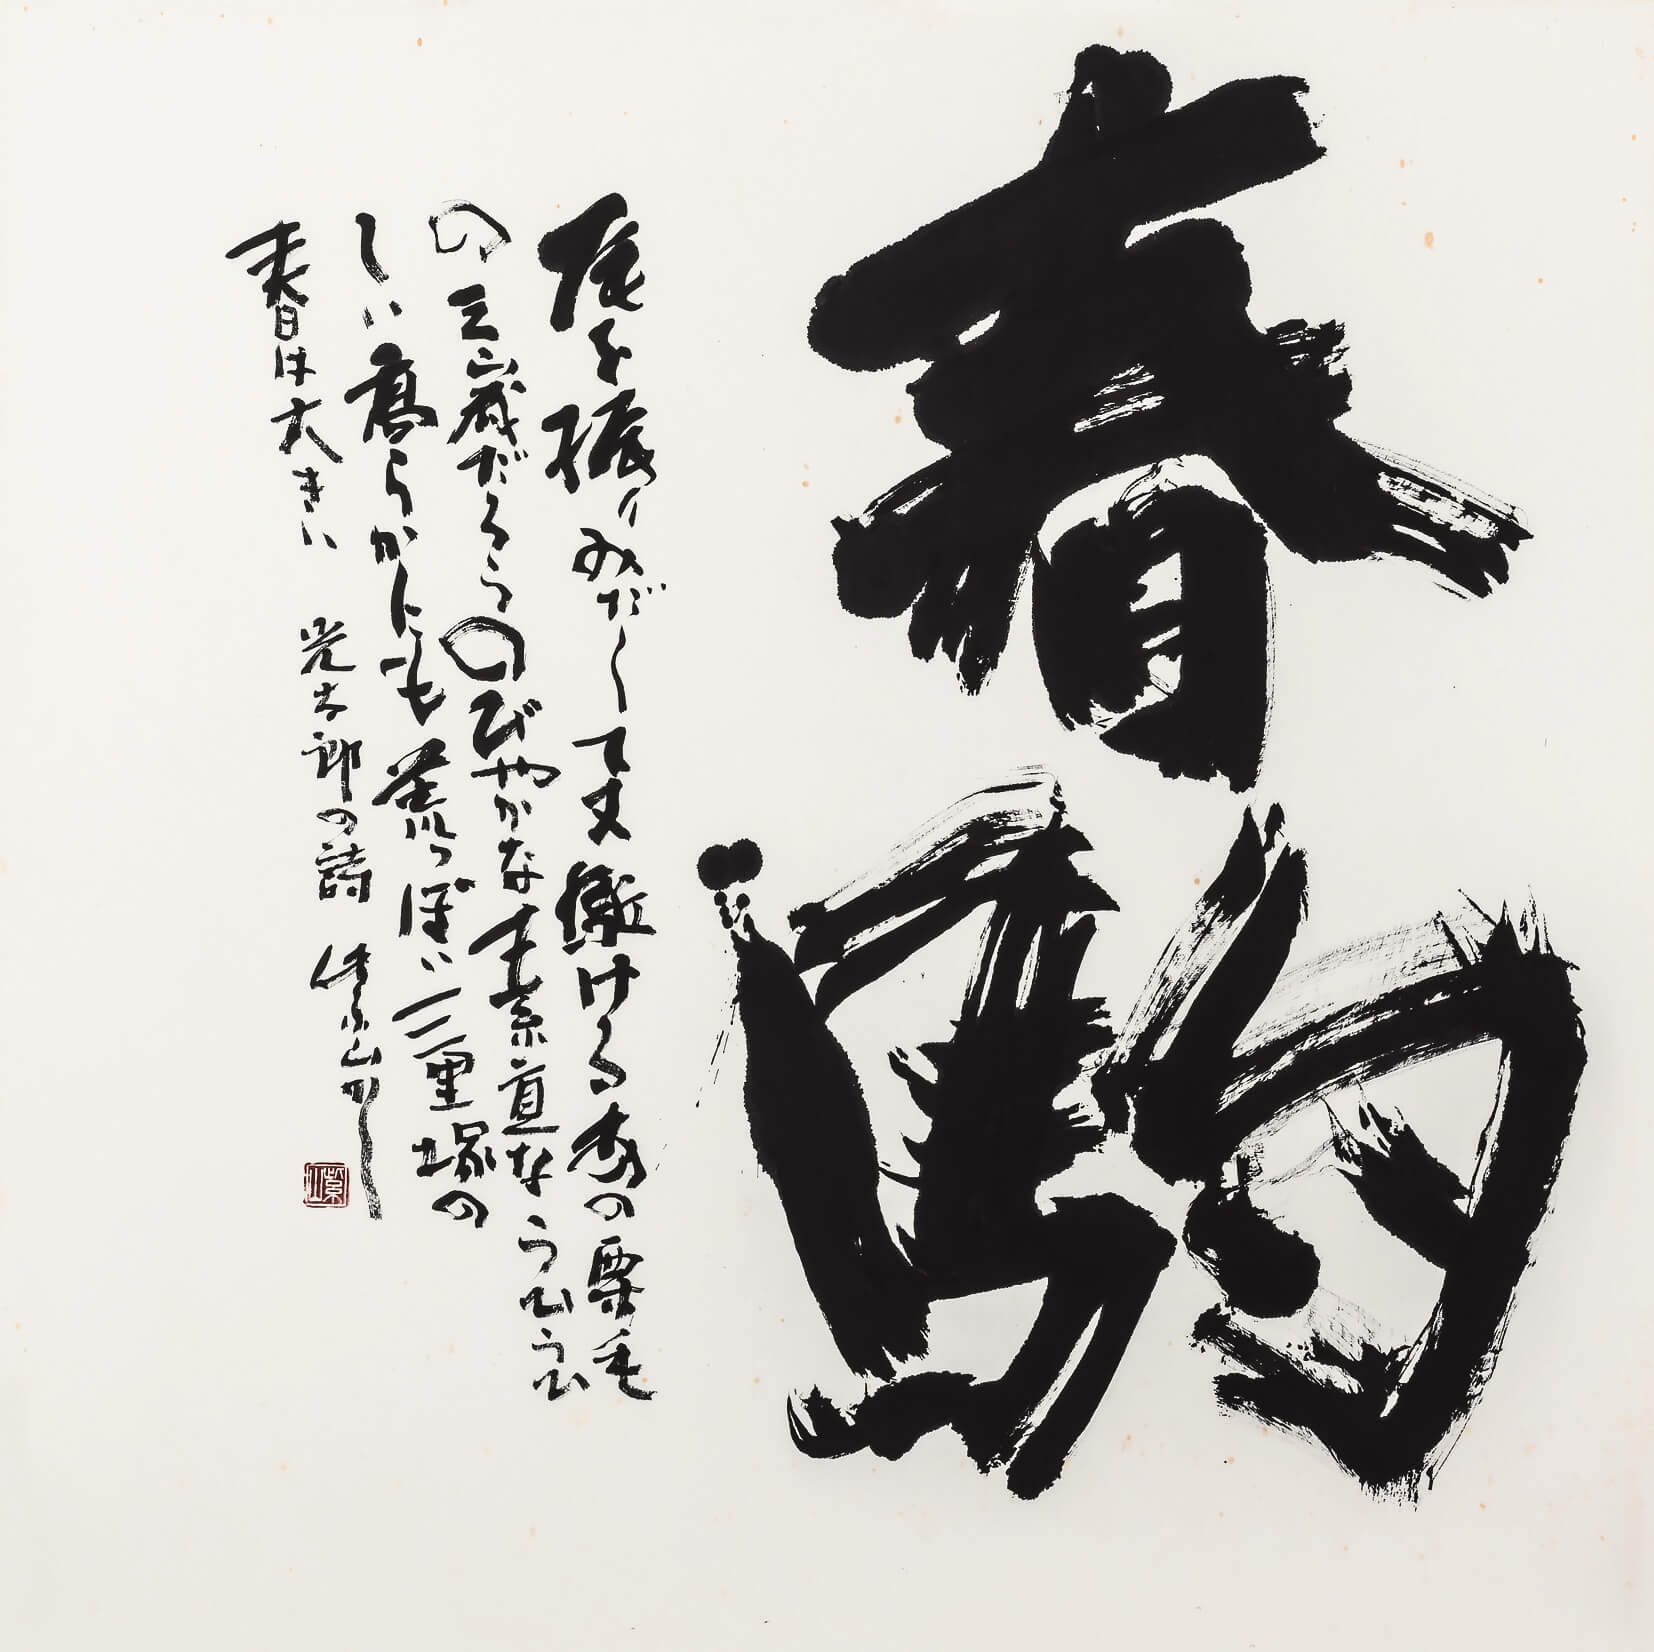 春駒
尾を振りみだして又駈けるあの栗毛
の三歳だろうのびやかな素直なうひうひ
しい高らかにも荒っぽい三里塚の
春は大きい 光太郎の詩 紫山かく
紫山